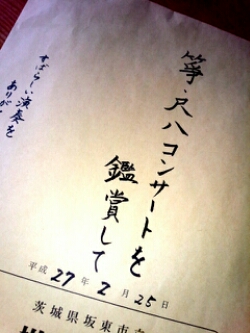 箏・尺八コンサートを
鑑賞して
すばらしい演奏を
ありが
平成27年2月25日
茨城県坂東市